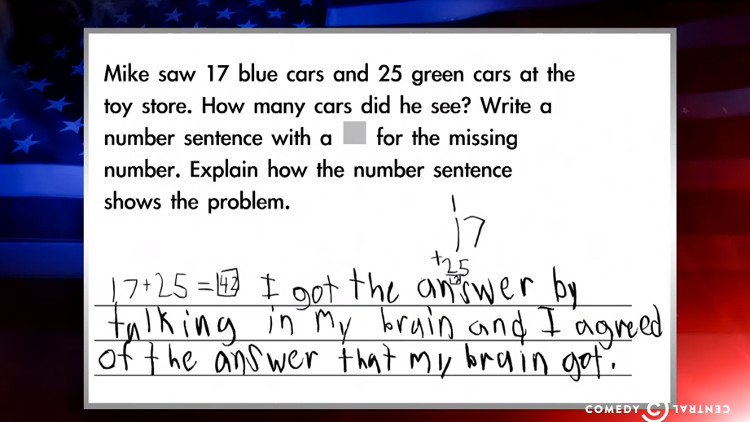 Mike saw 17 blue cars and 25 green cars at the
toy store. How many cars did he see? Write a
number sentence with a for the missing
number. Explain how the number sentence
shows the problem.
1
17
+25
42
17+25=42 I got the answer by
talking in my brain and I agreed
of the answer that my brain got.
COMEDY CENTRAL